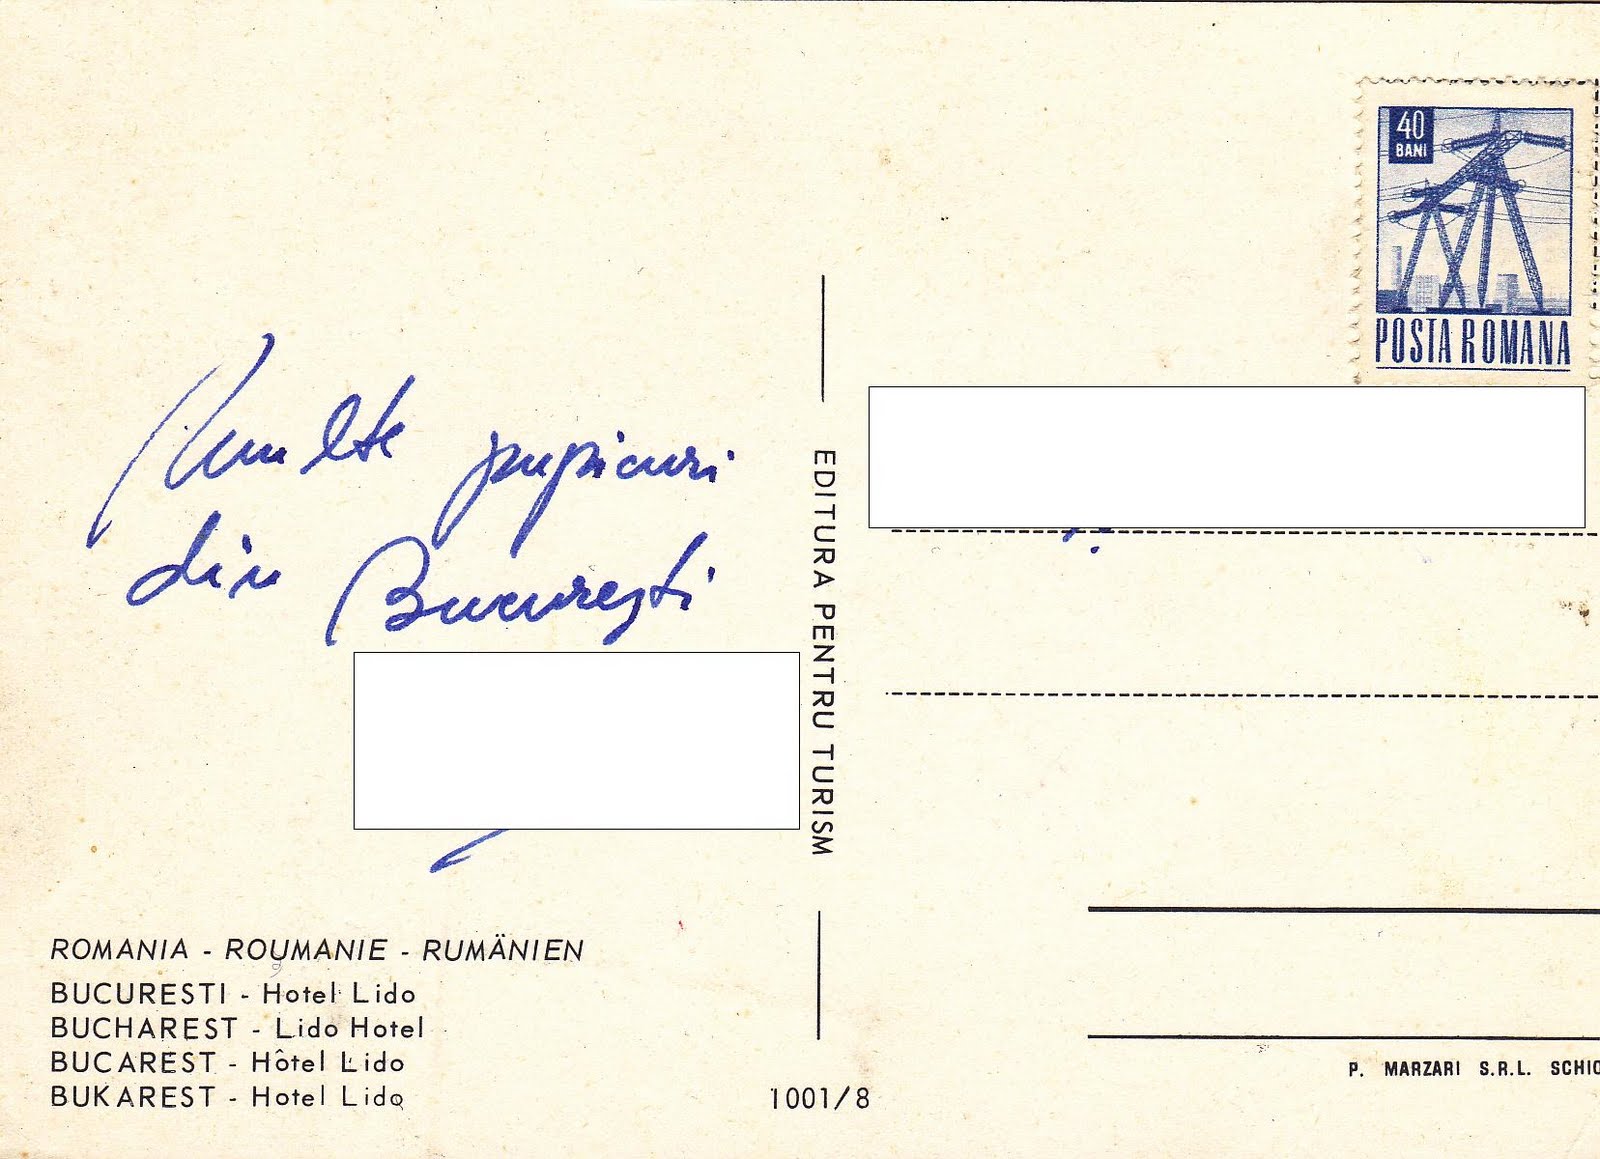 40
BANI
POSTA ROMANA
Multe pupicuri
din București
EDITURA PENTRU TURISM
ROMANIA - ROUMANIE - RUMÄNIEN
BUCURESTI - Hotel Lido
BUCHAREST - Lido Hotel
BUCAREST - Hôtel Lido
BUKAREST - Hotel Lido
1001/8
P. MARZARI S.R.L. SCHIO